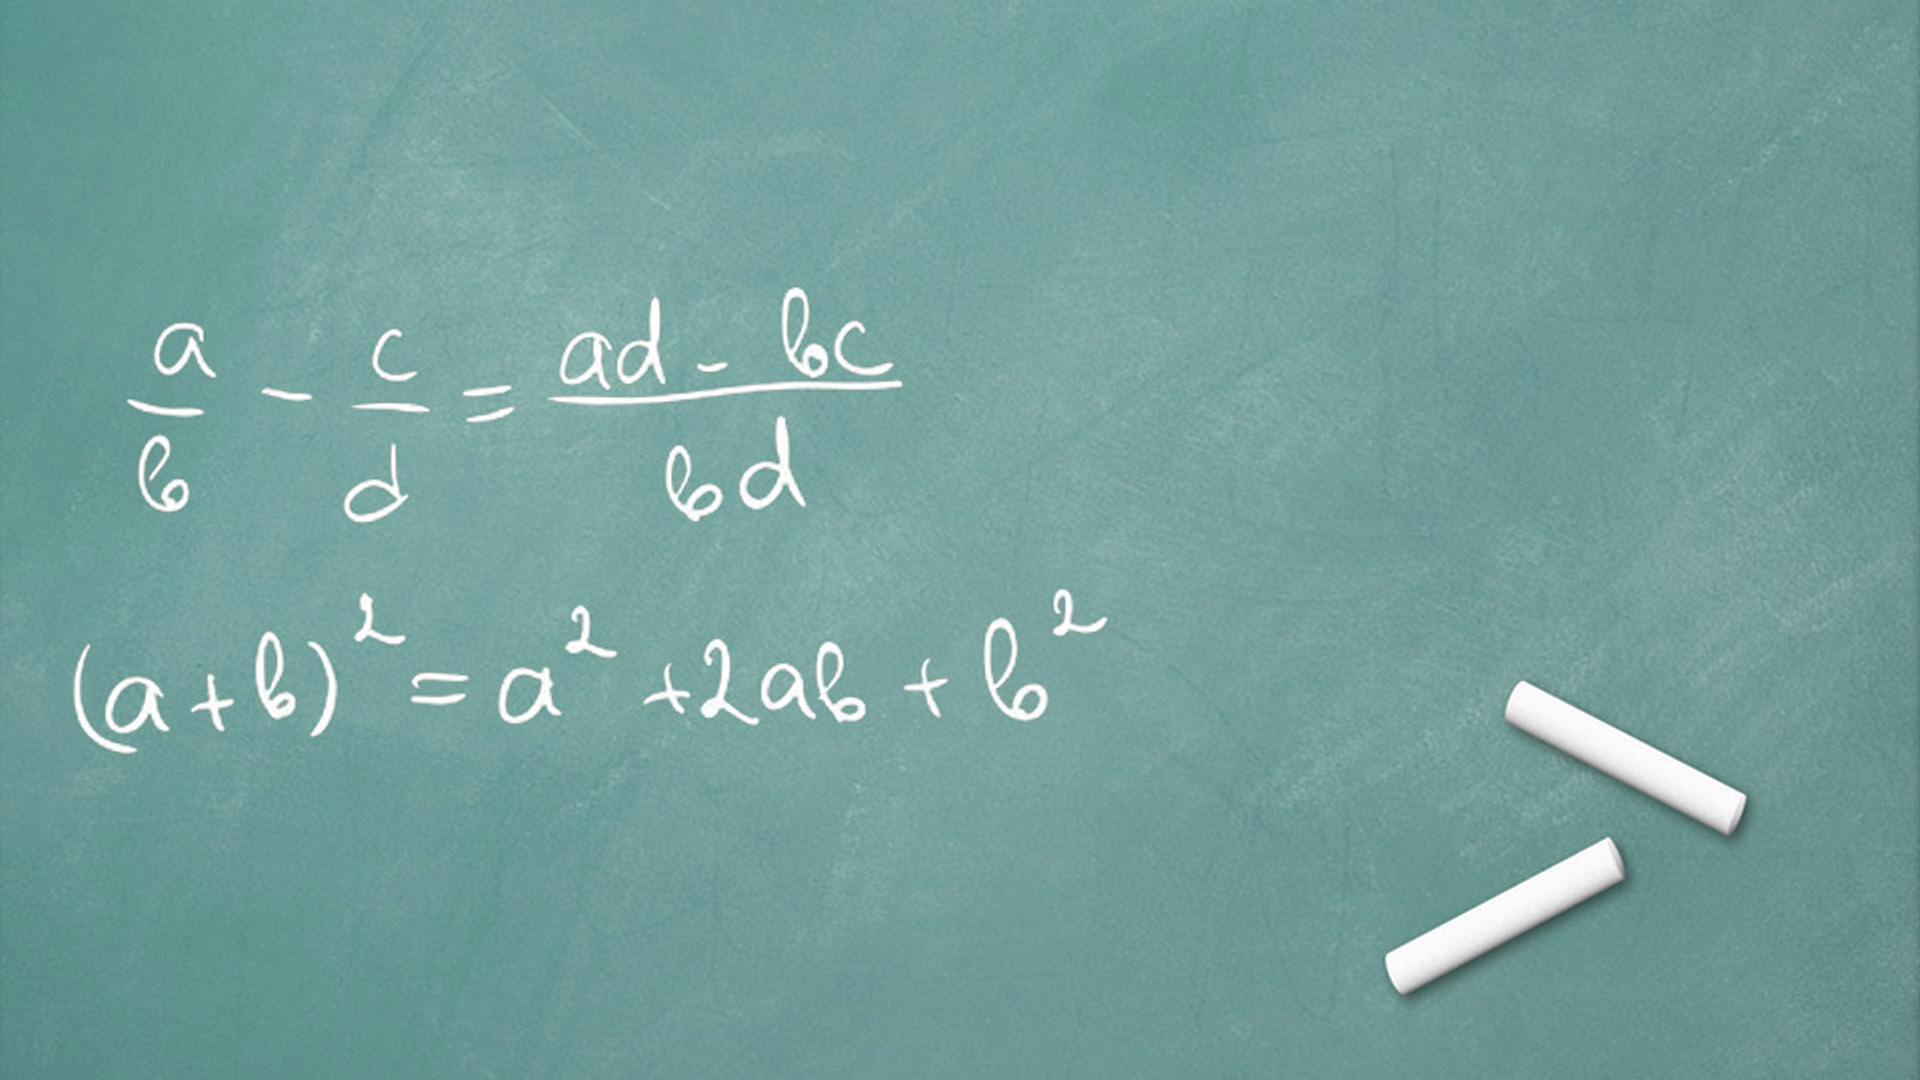 a/b - c/d = (ad - bc)/(bd)
(a+b)² = a² +2ab + b²